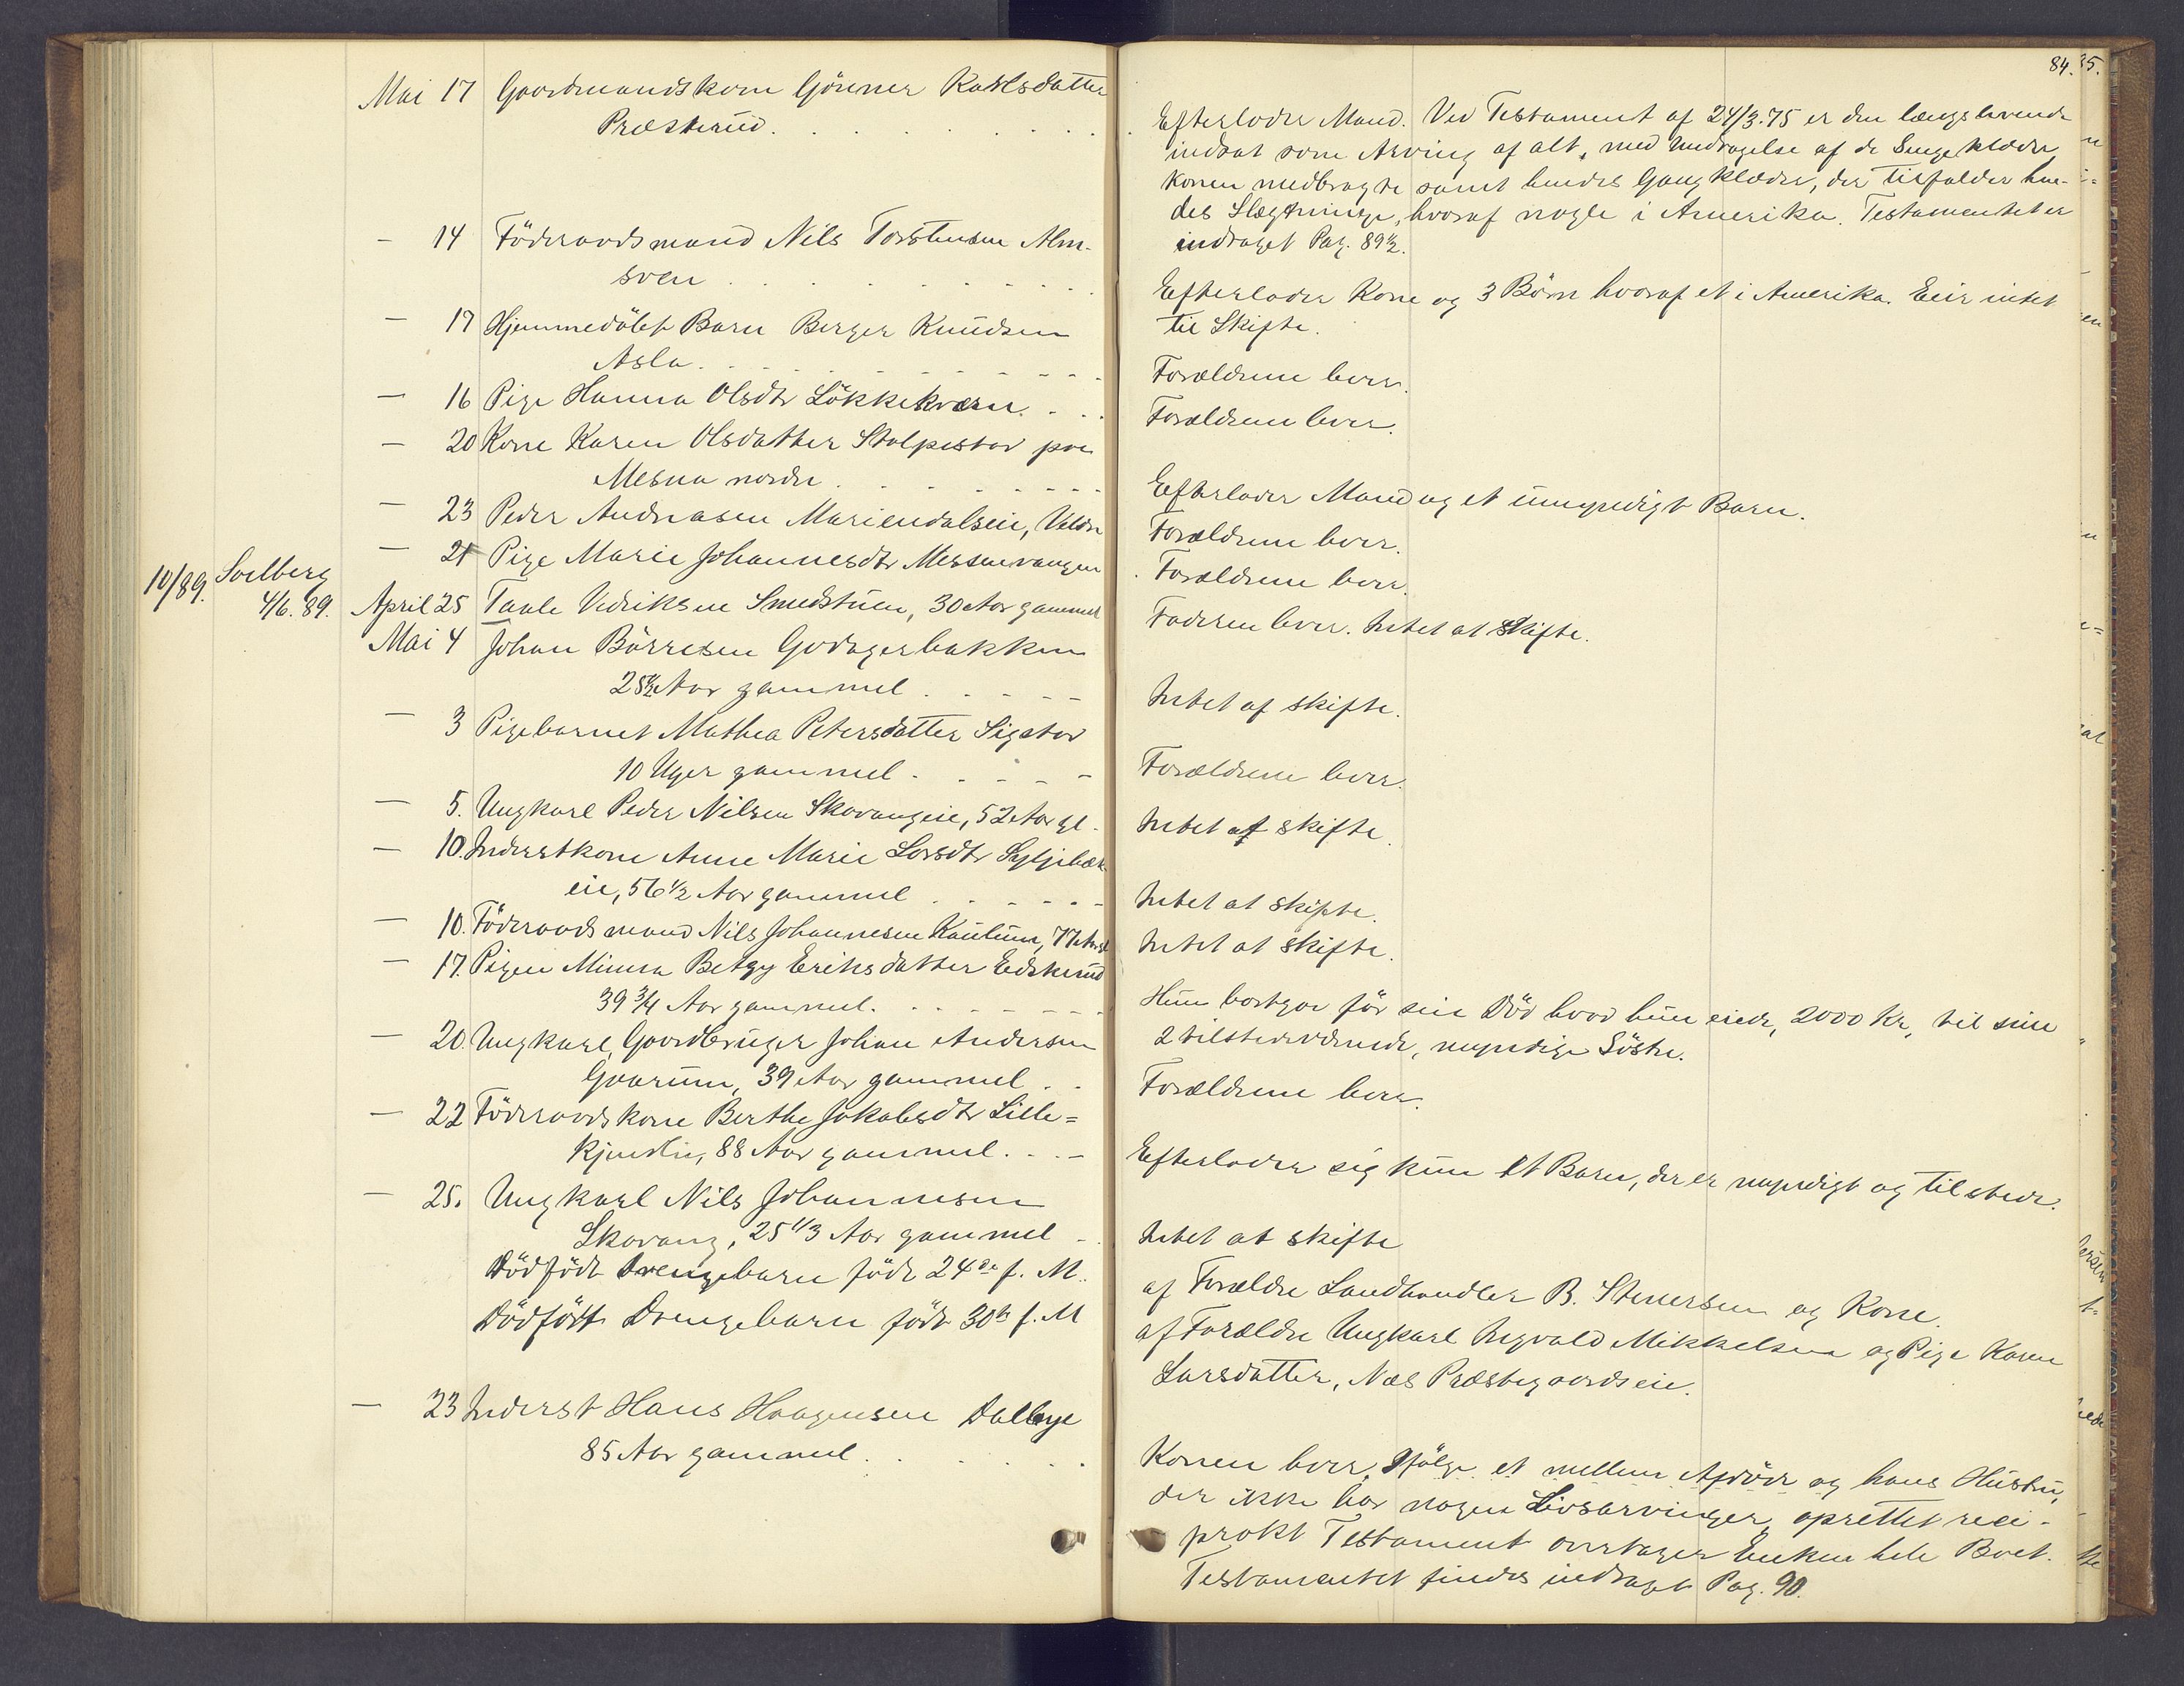 84.
Mai 17 Gaardmandskone Göriner Karlsdatter
Præsterud.
Efterlader Mand. Ved Testament af 24/3.75 er den længstlevende
indsat som Arving af alt, med Undtagelse af de Sengeklæder
Konen medbragte samt hendes Gangklæder, der tilfalder hen-
des Slægtninge, hvoraf nogle i Amerika. Testamentet er
indtaget Pag. 89½.
— 14 Föderaadsmand Nils Torstensen Alm-
sveen
Efterlader Kone og 3 Börn hvoraf et i Amerika. Eier intet
til Skifte.
— 17 Hjemmedöbt Barn Berger Knudsen
Asla.
Forældrene lever.
— 16 Pige Hanna Olsdtr Lökkekværn.
Forældrene lever.
— 20 Kone Karen Olsdatter Stolpestad paa
Mesna nordre
Efterlader Mand og et umyndigt Barn.
— 23 Peder Andreasen Mariendalseie, Veldre
Forældrene lever.
— 21 Pige Marie Johannesdtr Messenvangen
Forældrene lever.
10/89. Soelberg
4/6. 89. April 25 Taale Vedriksen Smedstuen, 30 Aar gammel
Faderen lever. Intet at skifte.
Mai 4 Johan Börresen Godagerbakken
25½ Aar gammel
Intet at skifte.
— 3 Pigebarnet Mathea Petersdatter Sigstad
10 Uger gammel
Forældrene lever.
— 5. Ungkarl Peder Nilsen Skavangeie, 52 Aar gl.
Intet at skifte.
— 10. Inderstkone Anne Marie Larsdtr Syljebæk
eie, 56 1/2 Aar gammel
Intet at skifte.
— 10. Föderaadsmand Nils Johannesen Kaulum, 77 Aar
Intet at skifte.
— 17. Pigen Minna Betzy Eriksdatter Eidskrud
39 3/4 Aar gammel.
Hun bortgav för sin Död hvad hun eiede, 2000 Kr, til sine
2 tilstedeværende, myndige Söstre.
— 20. Ungkarl, Gaardbruger Johan Andersen
Gaarum, 39 Aar gammel
Forældrene lever.
— 22 Föderaadskone Berthe Jakobsdtr Lille=
kjendlie, 88 Aar gammel.
Efterlader sig kun et Barn, der er myndigt og tilstede.
— 25. Ungkarl Nils Johannesen
Skavang, 25 1/3 Aar gammel
Intet at skifte
Dödfödt Drengebarn födt 24de f. M.
af Forældre Landhandler B. Stenersen og Kone.
Dödfödt Drengebarn födt 30te f. M
af Forældre Ungkarl Ingvald Mikkelsen og Pige Karen
Larsdatter, Næs Præstegaardseie.
— 23 Inderst Hans Haagensen Dalbye
85 Aar gammel.
Konen lever. Ifölge et mellem Afdöde og hans Hustru,
der ikke har nogen Livsarvinger, oprettet reci-
prokt Testament overtager Enken hele Boet.
Testamentet findes indtaget Pag. 90.